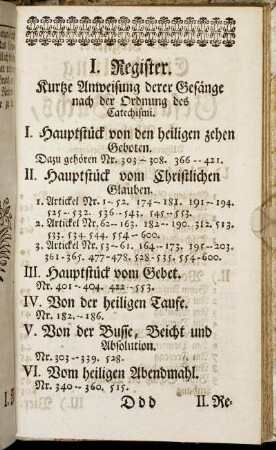 I. Register.
Kurtze Anweisung derer Gesänge
nach der Ordnung des
Catechismi.
I. Hauptstück von den heiligen zehen
Geboten.
Dazu gehören Nr. 303-308. 366--421.
II. Hauptstück vom Christlichen
Glauben.
1. Artickel Nr. 1-52. 174-181. 191-194.
525-532. 536-543. 545-553.
2. Artickel Nr. 62-163. 182--190. 312. 513.
533. 534. 544. 554-600.
3. Artickel Nr. 53-61. 164--173. 195--203.
361-365. 477-478. 528-535. 554-600.
III. Hauptstück vom Gebet.
Nr. 401-404. 422-553.
IV. Von der heiligen Taufe.
Nr. 182.-186.
V. Von der Busse, Beicht und
Absolution.
Nr. 303--339. 528.
VI. Vom heiligen Abendmahl.
Nr. 340-360. 515.
Ddd
II. Re-